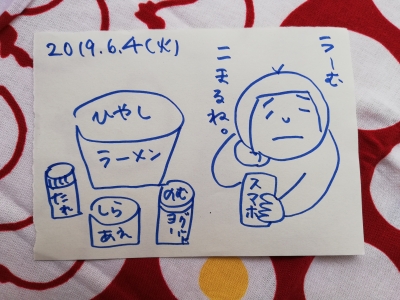 2019.6.4(火)
うーむ
こまるね。
ひやし
ラーメン
たれ
しら
あえ
のむ
ヨーグルト
スマホ